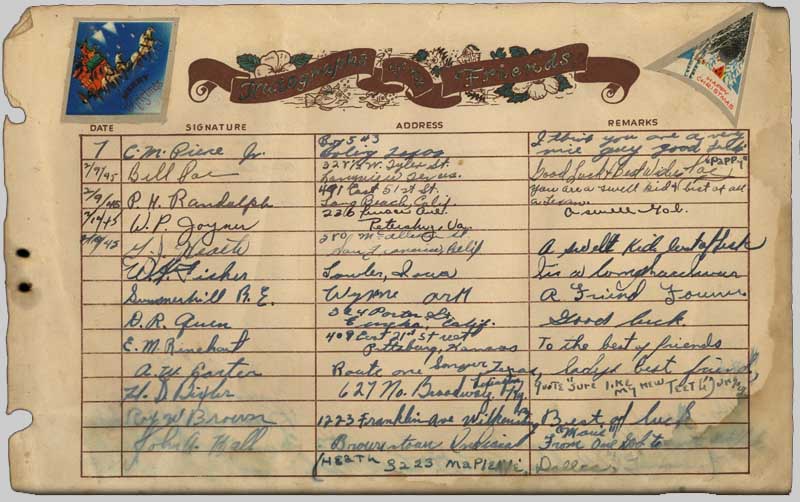 Autographs of My Friends
MERRY CHRISTMAS
DATE SIGNATURE ADDRESS REMARKS
7 C. M. Pierce Jr. Box 543 Texas I think you are a very nice guy good luck
2/9/45 Bill Pace 322 1/2 W. Tyler St. Longview Texas Good Luck & Best Wishes "PAPPY" Pace
2/9/45 P. H. Randolph 491 East 51st St. Long Beach, Calif You are a swell kid & best of all a Texan
2/10/45 W. P. Joyner 226 Ave. Petersburg, Va. a swell Gal.
2/10/45 Heath San Francisco, Calif A swell kid, best of luck
W. H. Fisher Lawler, Iowa
Summerhill B. E. Wynne Ark A Friend Forever
D. R. Quen 364 Porter St. Eureka, Calif. Good luck.
E. M. Rinehart 409 East 21st Street Pittsburg, Kansas To the best of friends
A. W. Carter Route one Sanger Texas, ladys best friend,
H. D. 627 No. Broadway, Lexington Ky. QUOTE "SURE LIKE MY NEW TEETH"
Roy W Brown 1223 Franklin Ave Wilkinsburg Best of luck
John A. Hall Brownstown Indiana From One to
(HEATH 3223 MAPLE Dallas